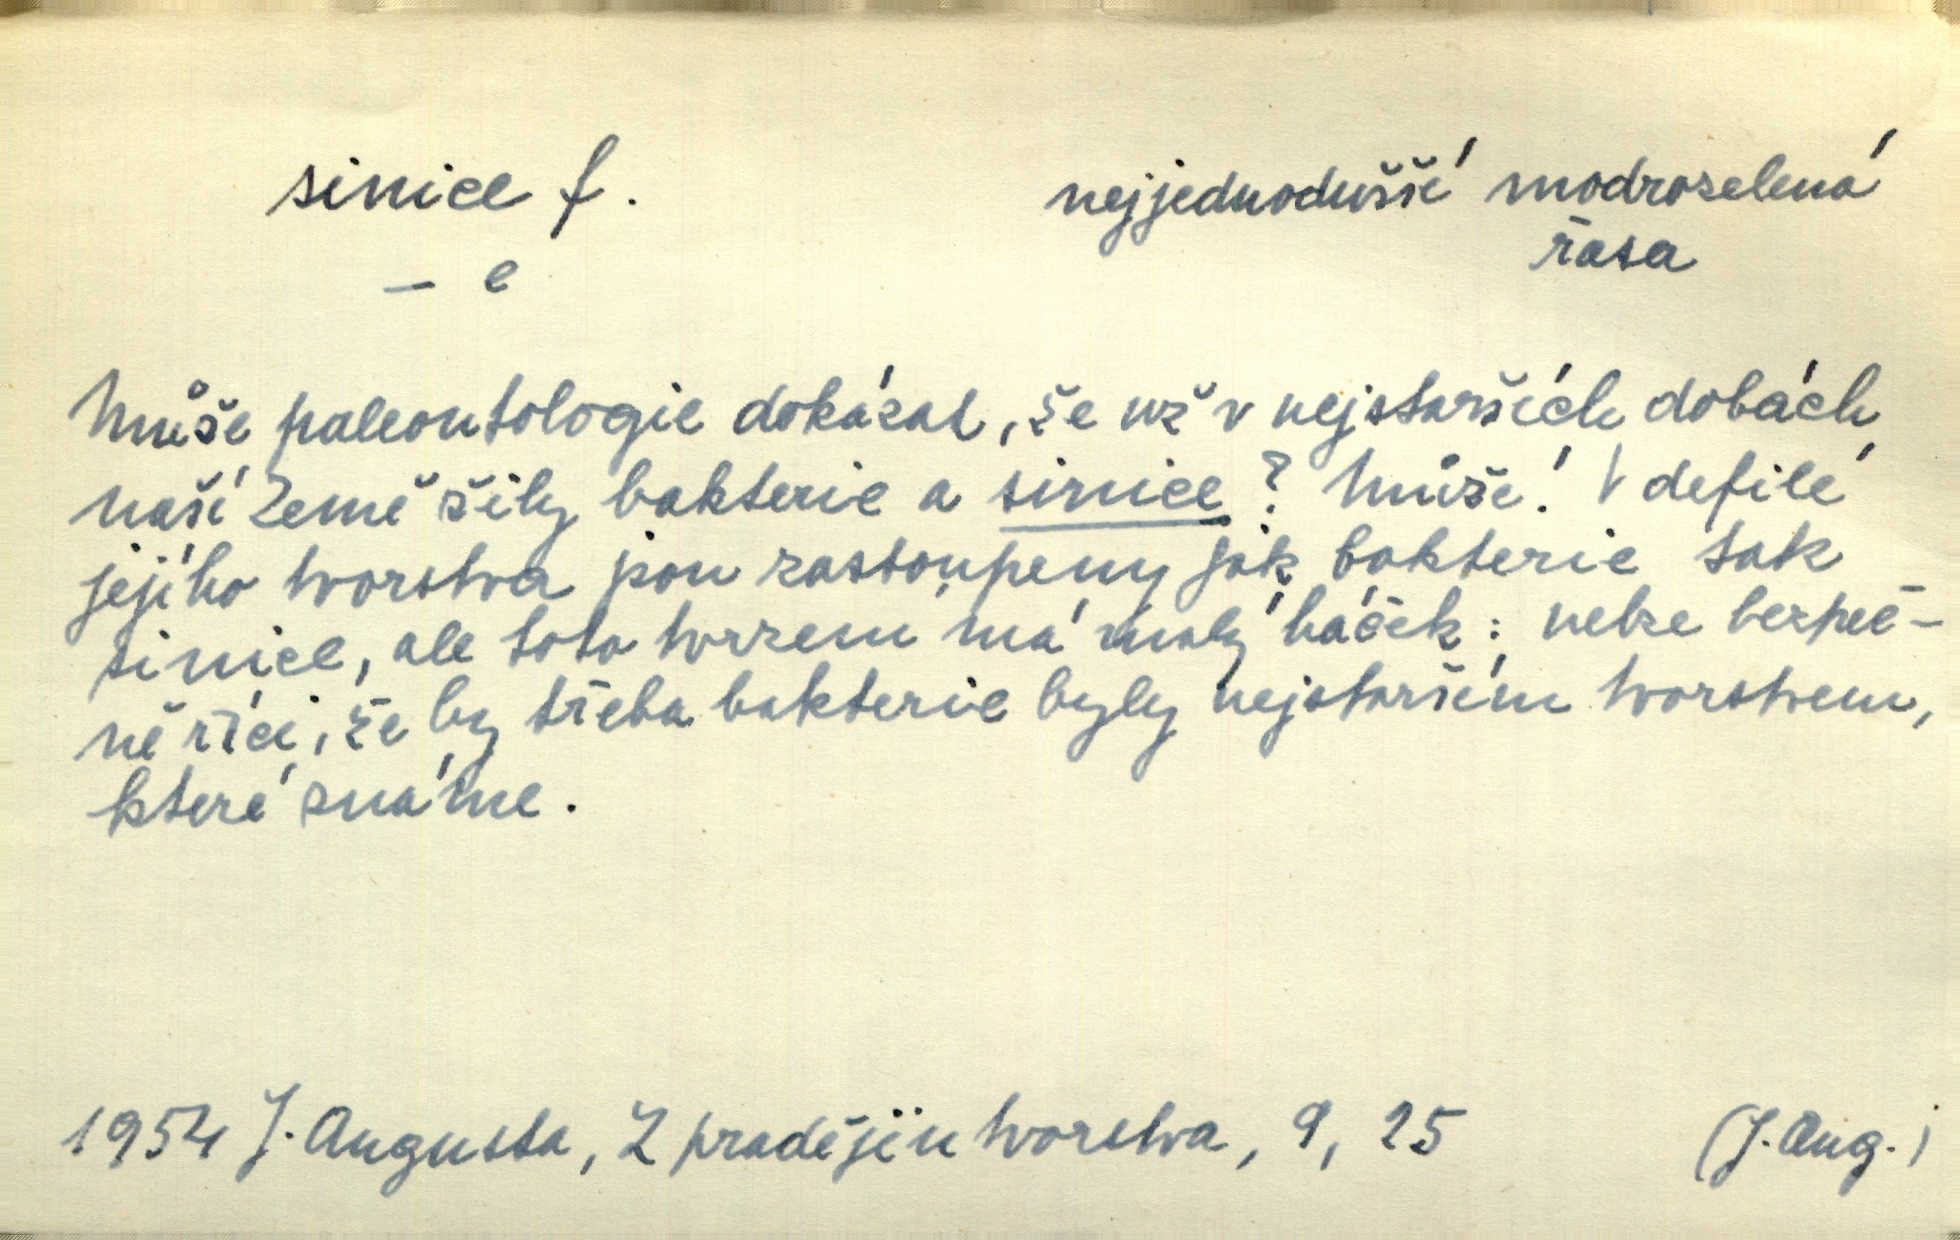 sinice f.
nejjednodušší modrozelená
řasa
– e
Může paleontologie dokázat, že už v nejstarších dobách
naší Země žily bakterie a sinice? Může! V defilé
jejího tvorstva jsou zastoupeny jak bakterie tak
sinice, ale toto tvrzení má malý háček: nelze bezpeč-
ně říci, že by třeba bakterie byly nejstarším tvorstvem,
které známe.
1954 J. Augusta, Z pradějin tvorstva, 9, 25
(J. Aug.)